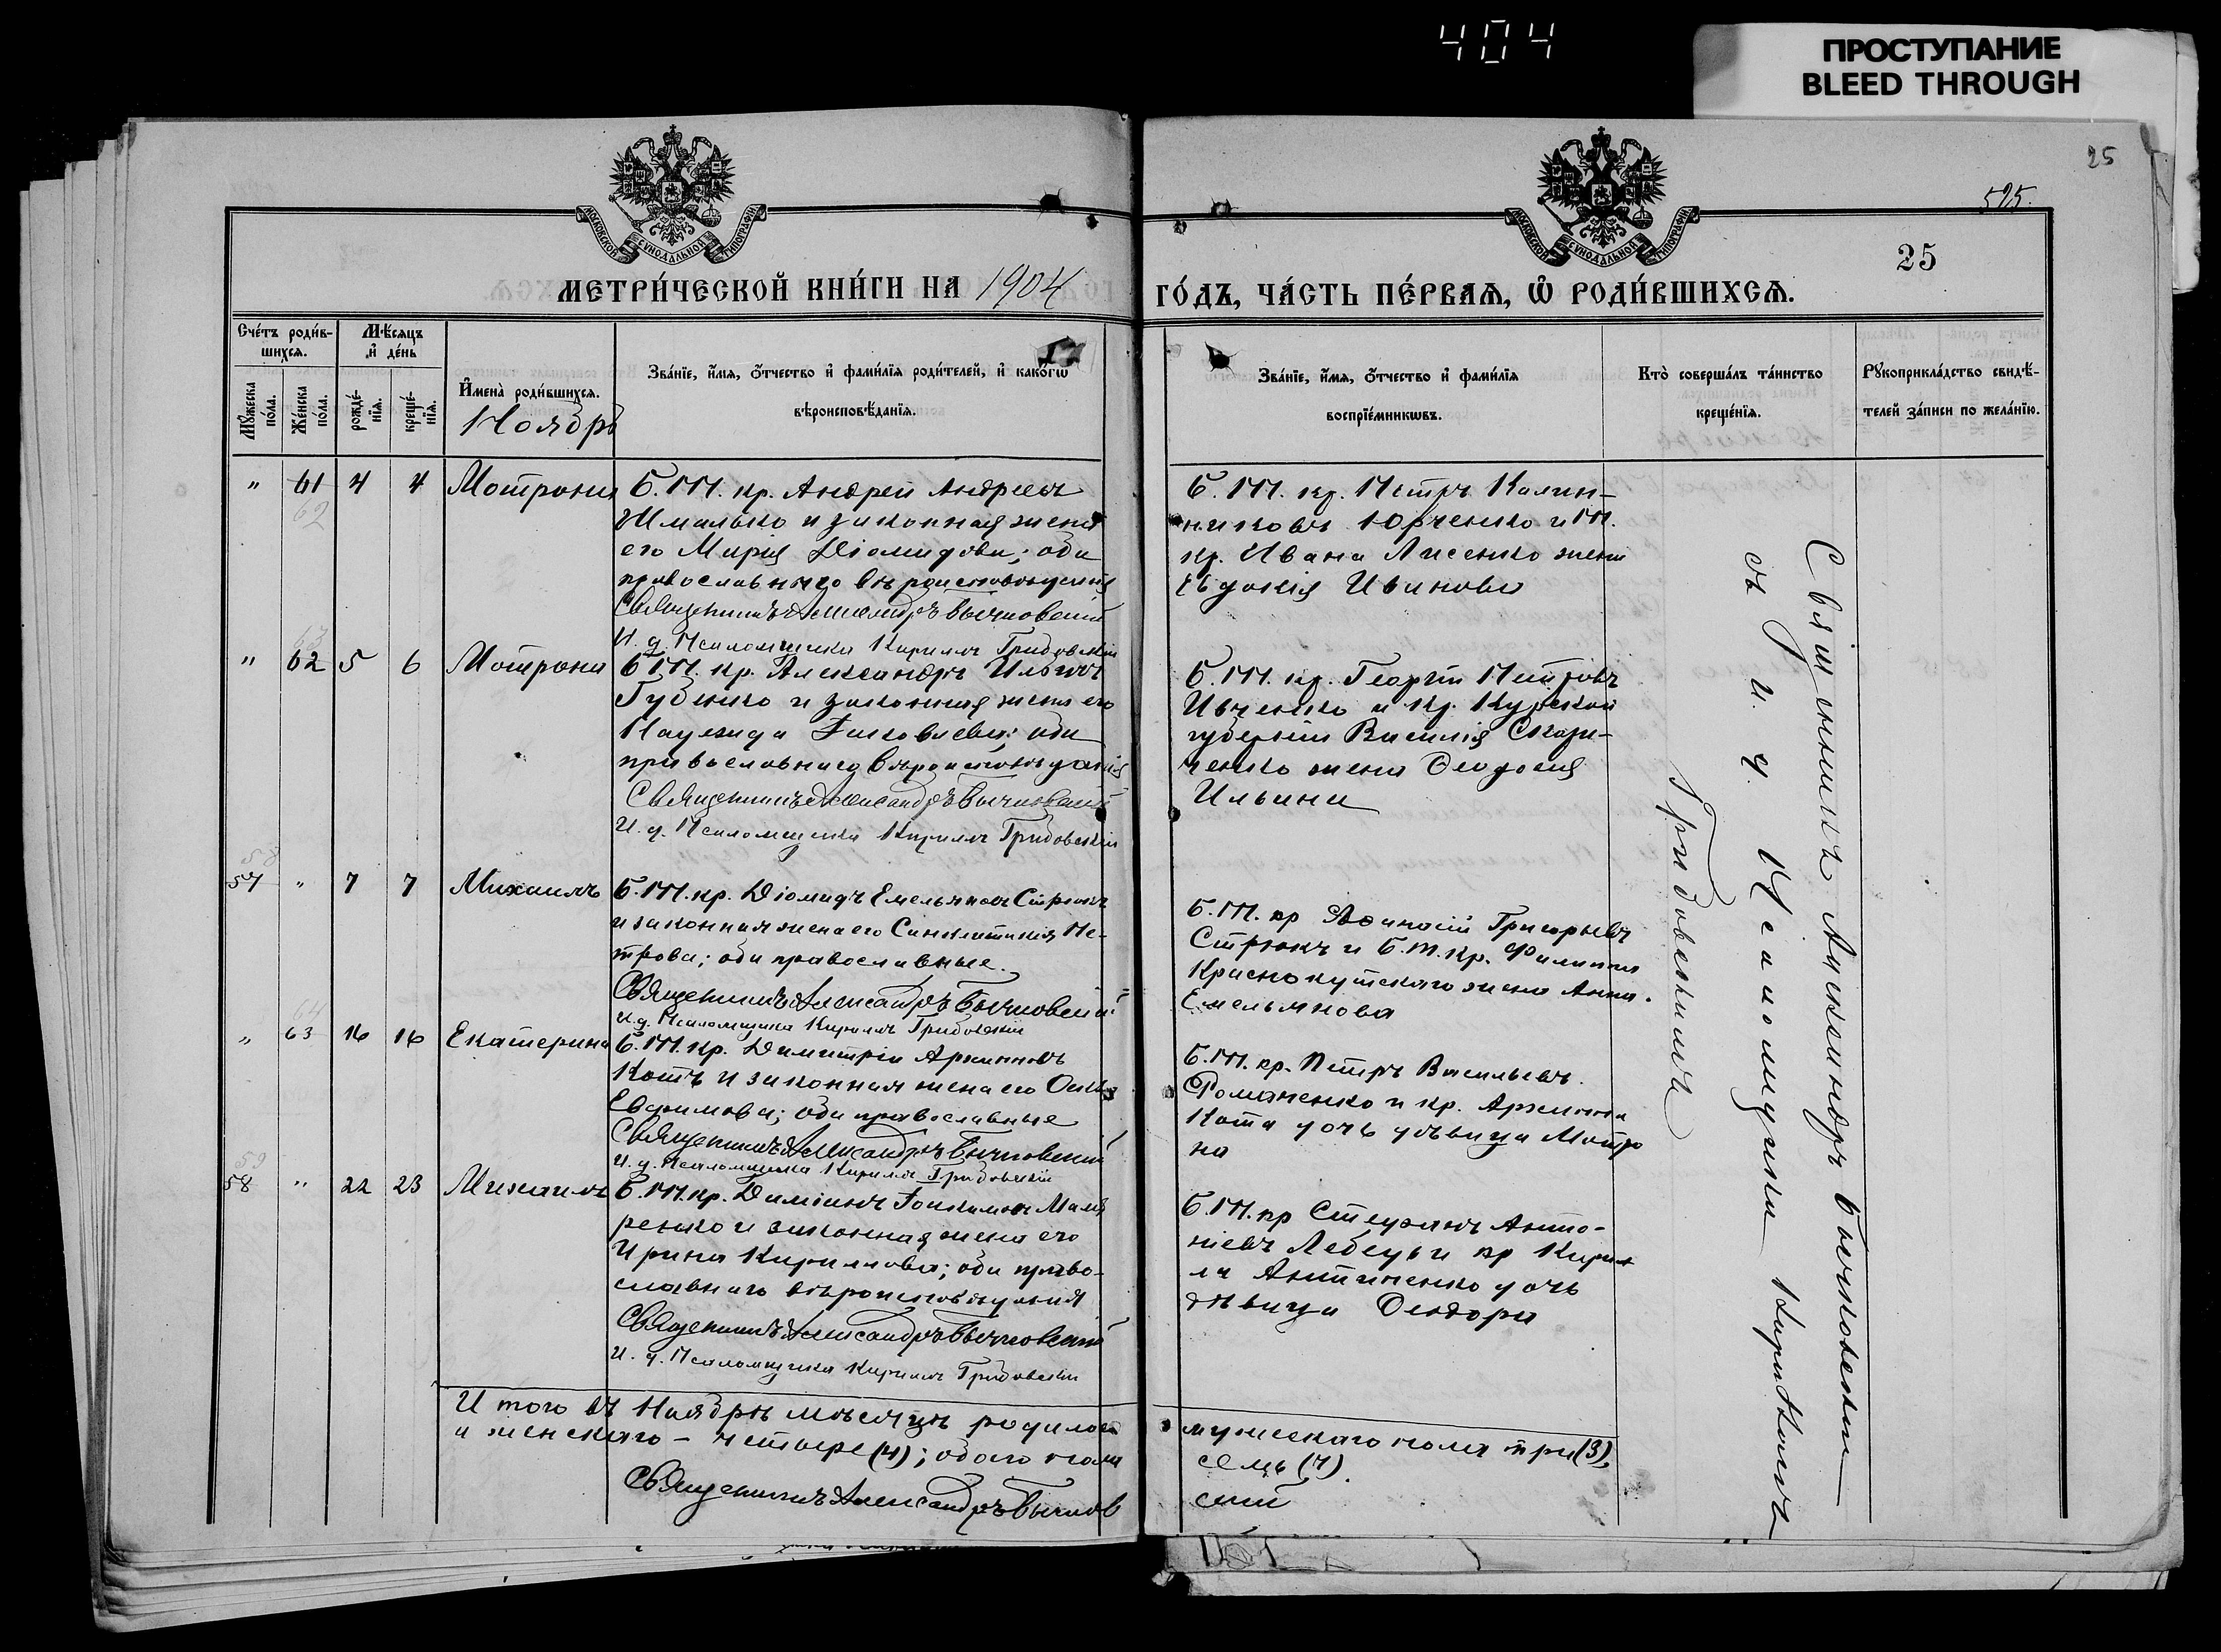 404
ПРОСТУПАНИЕ
BLEED THROUGH
25
525.
25
МОСКОВСКОЙ СѴНОДАЛЬНОЙ ТИПОГРАФІИ
МОСКОВСКОЙ СѴНОДАЛЬНОЙ ТИПОГРАФІИ
МЕТРИ́ЧЕСКОЙ КНИ́ГИ НА 1904
ГО́ДЪ, ЧА́СТЬ ПЕ́РВАѦ, Ѽ РОДИ́ВШИХСѦ.
Сче́тъ роди́в-
шихсѧ.
Мꙋ́жеска по́ла.
Же́нска по́ла.
Мѣ́сѧцъ
и҆ де́нь
рожде́-
нїѧ.
креще́-
нїѧ.
И҆мена̀ роди́вшихсѧ.
Ноябрь
Зва́нїе, и҆́мѧ, ѻ҆́тчество и҆ фами́лїѧ роди́телей, и҆ како́гѡ
вѣроисповѣ́данїѧ.
Зва́нїе, и҆́мѧ, ѻ҆́тчество и҆ фами́лїѧ
воспрїе́мникѡвъ.
Кто̀ соверша́лъ та́инство
креще́нїѧ.
Рꙋкоприкла́дство свидѣ́-
телей за́писи по жела́нїю.
" 61 4 4 Мотрона
62
Б.М. кр. Андрей Андреевъ
Шмалько и законная жена
его Марія Діомидова; оба
православнаго вѣроисповѣданія
Священникъ Александръ Бычковскій
И. д. Псаломщика Кириллъ Грибовскій
Б. М. кр. Петръ Калин-
никовъ Юрченко и М.
кр. Ивана Лисенко жена
Евдокія Иванова
63
" 62 5 6 Мотрона
Б.М. кр. Александръ Ильинъ
Губенко и законная жена его
Надежда Яковлева; оба
православнаго вѣроисповѣданія
Священникъ Александръ Бычковскій
И. д. Псаломщика Кириллъ Грибовскій
Б. М. кр. Георгій Петровъ
Ивченко и кр. Курской
губерніи Василія
жена Ѳеодосія
Ильина
58
57 " 7 7 Михаилъ
Б. М. кр. Діомидъ Емельяновъ Стрюкъ
и законная жена его Синклитикія Пе-
трова; оба православные.
Священникъ Александръ Бычковскій
И. д. Псаломщика Кириллъ Грибовскій
Б. М. кр Аѳанасій Григорьевъ
Стрюкъ и Б. М. кр. Филиппа
Краснокутскаго жена Анна
Емельянова
64
" 63 16 16 Екатерина
Б. М. кр. Димитрій
Котъ и законная жена его
Евфимова; оба православные
Священникъ Александръ Бычковскій
И. д. Псаломщика Кириллъ Грибовскій
Б. М. кр. Петръ Васильевъ
Романенко и кр.
Кота дочь дѣвица Мотро
на
59
58 " 22 23 Михаилъ
Б. М. кр. Даміанъ Іоакимовъ
ренко и законная жена его
Ирина Кириллова; оба право-
славнаго вѣроисповѣданія
Священникъ Александръ Бычковскій
И. д. Псаломщика Кириллъ Грибовскій
Б. М. кр Стефанъ Анто-
ніевъ Лебедь и кр Кирил
ла Антипенко дочь
дѣвица Ѳеодора
Священникъ Александръ Бычковскій
съ и. д. Псаломщика Кирилломъ
Грибовскимъ
Итого въ Ноябрѣ мѣсяцѣ родилось мужескаго пола три (3),
и женскаго - четыре (4); обоего пола семь (7).
Священникъ Александръ Бычков скій